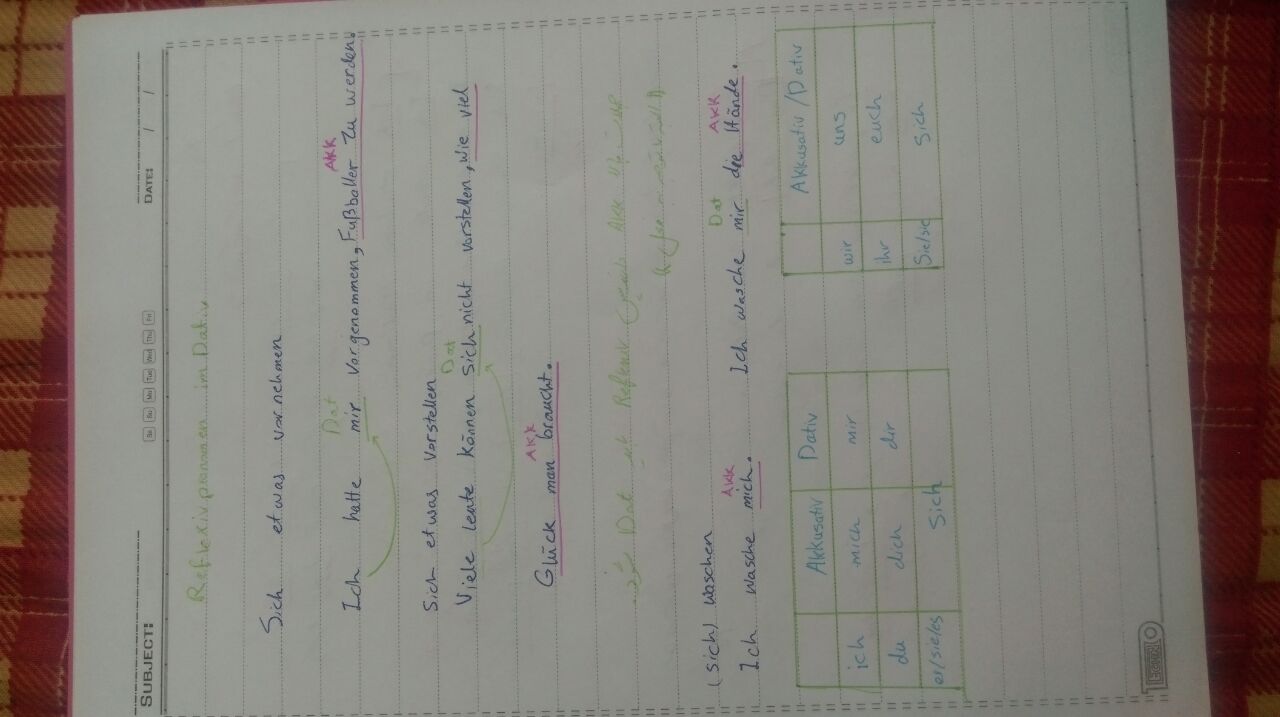 SUBJECT:
Sa Su Mo Tue Wed Thu Fri
DATE: / /
Reflexivpronomen im Dativ
Sich etwas vornehmen
Dat AKK
Ich hatte mir vorgenommen, Fußballer zu werden.
Sich etwas vorstellen
Dat
Viele leute können Sich nicht vorstellen, wie viel
AKK
Glück man braucht.
Dat Reflexiv AKK
(sich) waschen
AKK Dat AKK
Ich wasche mich. Ich wasche mir die Hände.
Akkusativ Dativ
ich mich mir
du dich dir
er/sie/es Sich
Akkusativ/Dativ
wir uns
ihr euch
Sie/sie Sich